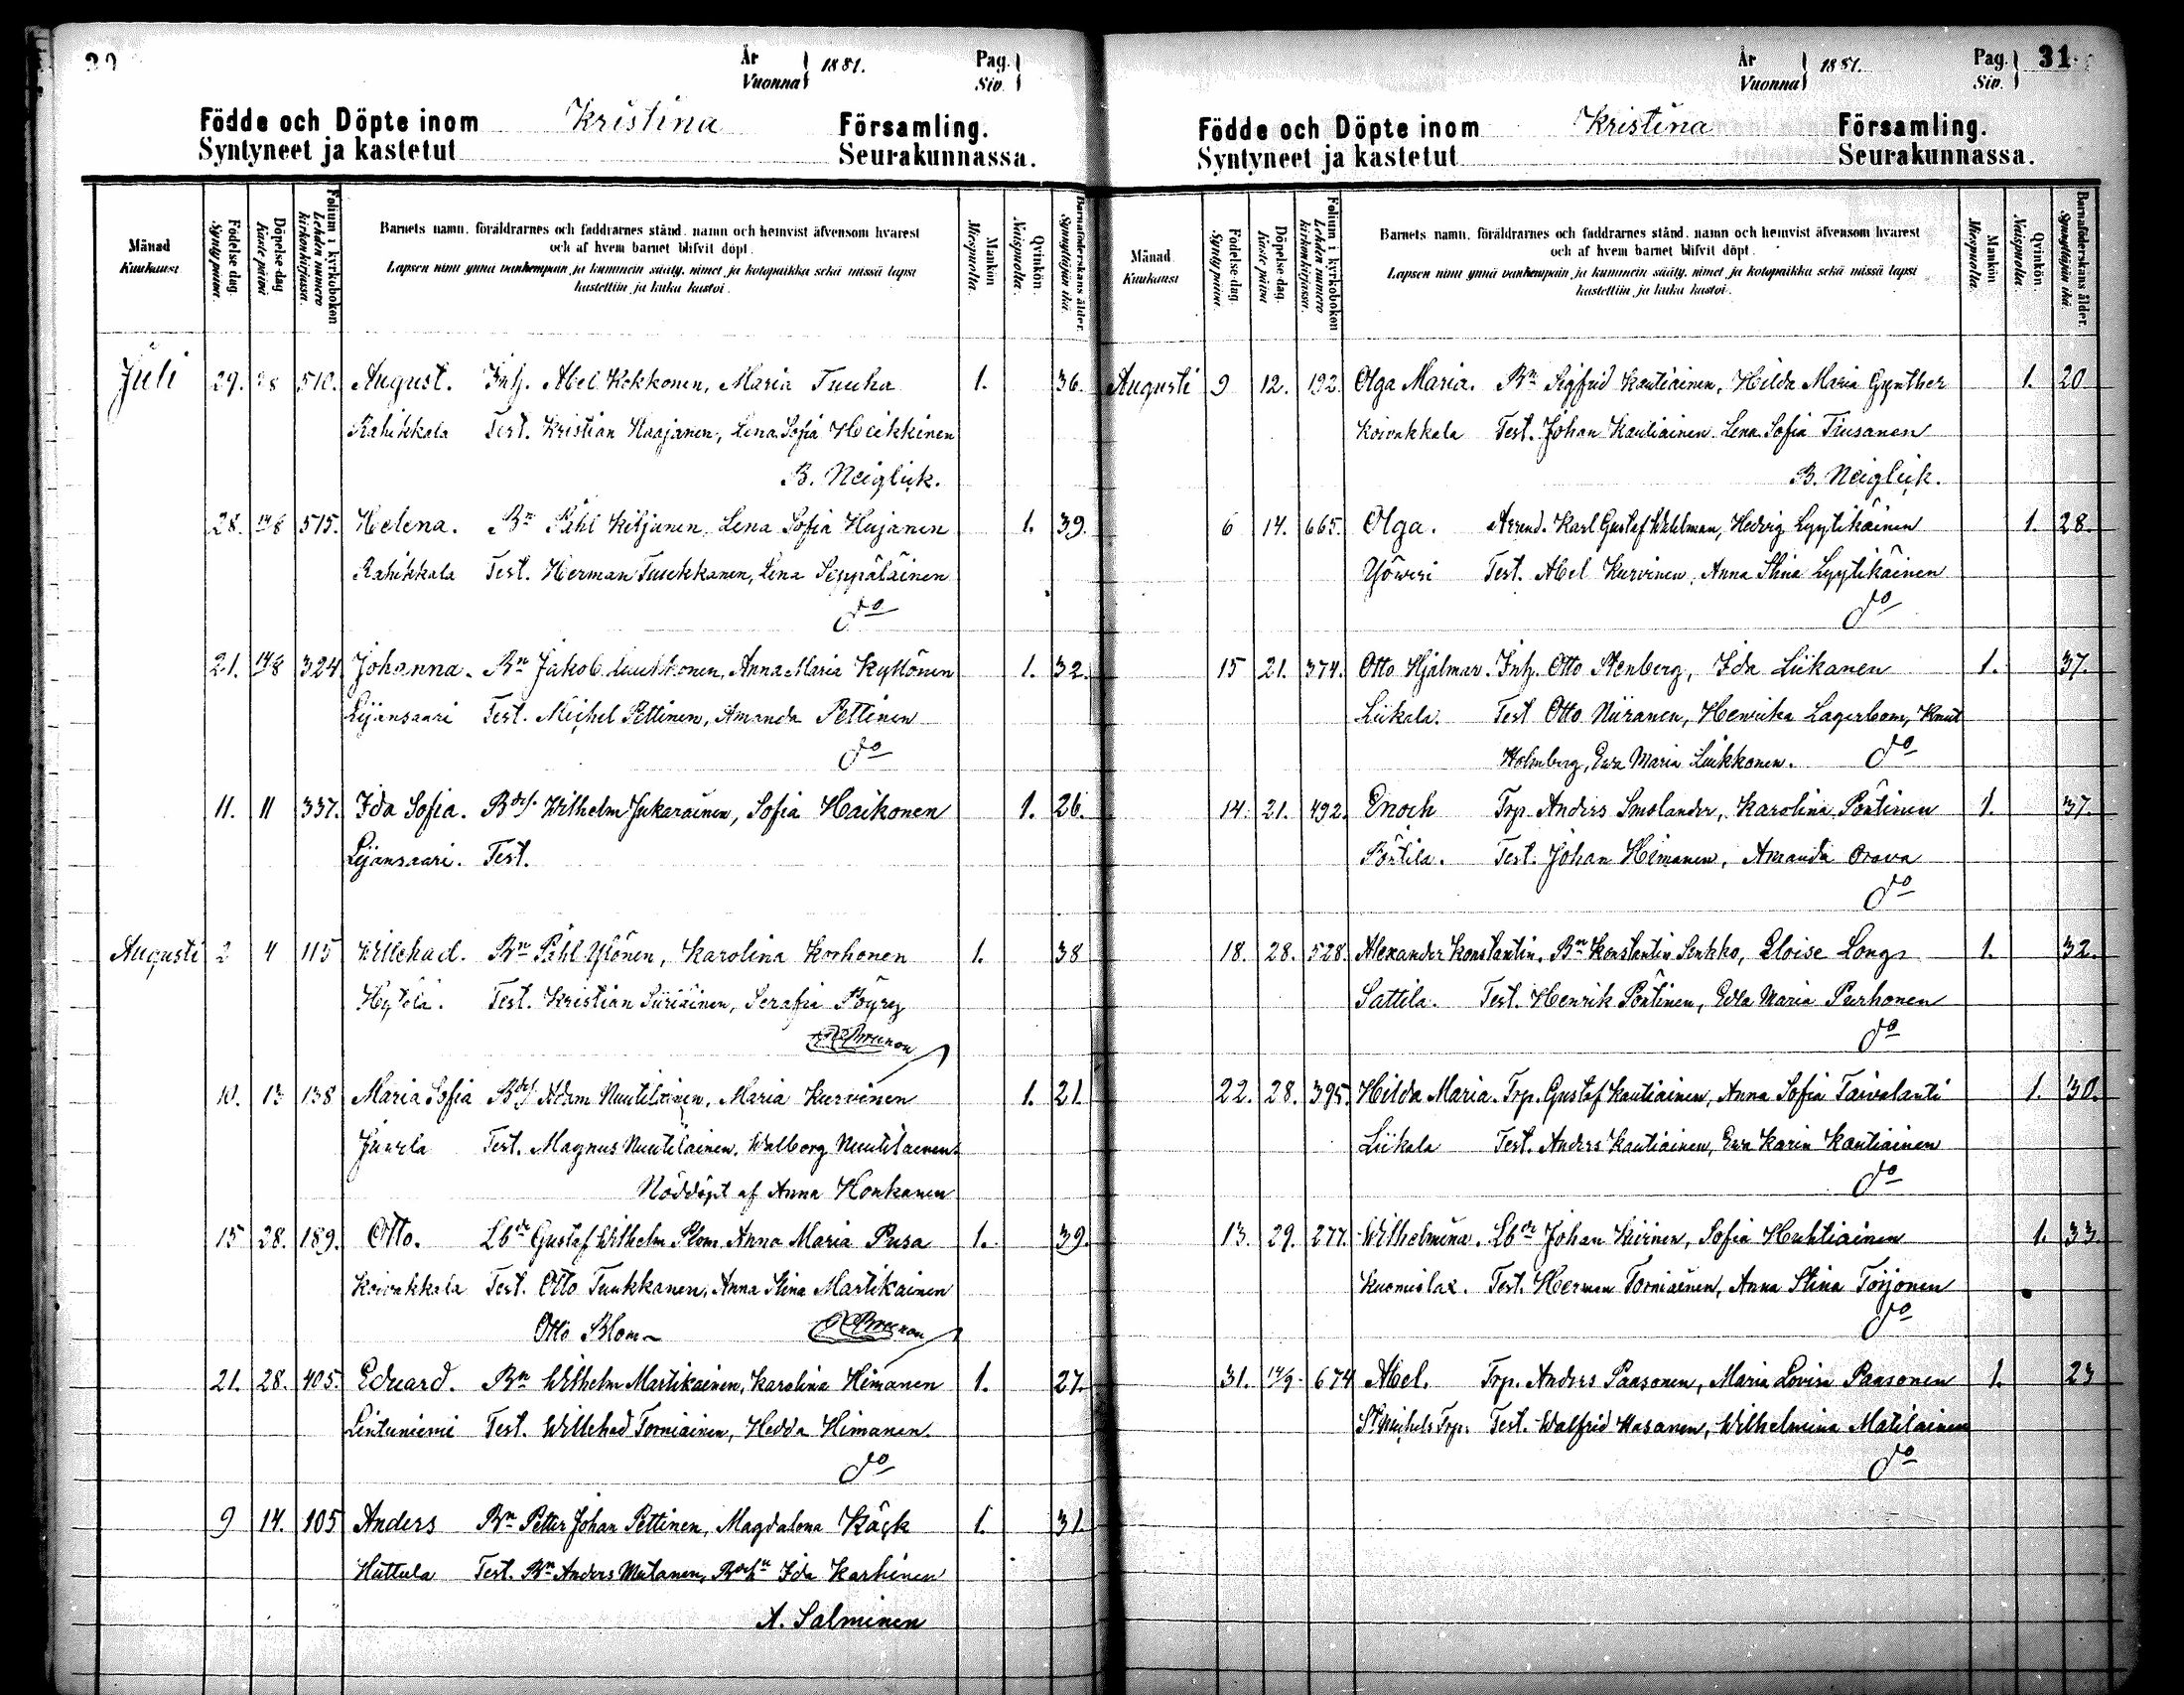 År
Vuonna
1881.
Pag.
Siv.
Födde och Döpte inom Kristina Församling.
Syntyneet ja kastetut Seurakunnassa.
Månad
Kuukausi
Födelse dag.
Synty päivä.
Döpelse-dag
Kaste päivä
Folium i kyrkoboken
Lehden numero
kirkonkirjassa.
Barnets namn, föräldrarnes och faddrarnes stånd, namn och hemvist äfvensom hvarest
och af hvem barnet blifvit döpt.
Lapsen nimi ynnä vanhempain ja kummein sääty, nimet ja kotopaikka sekä missä lapsi
kastettiin ja kuka kastoi.
Mankön
Miespuolta.
Qvinkön.
Naispuolta.
Barnaföderskans ålder.
Synnyttäjän ikä.
Juli 29. 510. August. Inh. Abel Kokkonen, Maria Tuuha 1. 36.
Rahikkala Test. Kristian Haajanen, Lena Sofia Heikkinen
B. Neiglick.
28. 14/8 515. Helena. Bn Påhl Kiljunen, Lena Sofia Hujanen 1. 39.
Rahikkala Test. Herman Tuukkanen, Lena Seppäläinen
do
21. 14/8 324 Johanna. Bn Jakob Luukkonen, Anna Maria Kyttönen 1. 32.
Lijansaari Test. Michel Pettinen, Amanda Pettinen
do
11. 11 337. Ida Sofia. Bds. Wilhelm Jukarainen, Sofia Haikonen 1. 26.
Lijansaari. Test.
Augusti 2 4 115 Willehad. Bn Påhl Ylönen, Karolina Korhonen 1. 38
Hytölä. Test. Kristian Siiriäinen, Serafia Pöyry
10. 13 138 Maria Sofia Bds Adam Nuutilainen, Maria Kurvinen 1. 21.
Juurla Test. Magnus Nuutilainen, Walborg Nuutilainen
Nöddöpt af Anna Honkanen
15 28. 189. Otto. Lbde Gustaf Wilhelm Blom Anna Maria Pusa 1. 39.
Koivakkala Test. Otto Tuukkanen, Anna Stina Martikainen
Otto Blom
21. 28. 405. Eduard. Bn Wilhelm Martikainen, Karolina Himanen 1. 27.
Lintuniemi Test. Willehad Torniainen, Hedda Himanen
do
9 14. 105 Anders Bn Petter Johan Pettinen, Magdalena Käck 1. 31.
Huttula Test. Bn Anders Mutanen, Ida Karhinen
A. Salminen
År
Vuonna
1881.
Pag.
Siv.
31
Födde och Döpte inom Kristina Församling.
Syntyneet ja kastetut Seurakunnassa.
Månad
Kuukausi
Födelse-dag.
Synty päivä.
Döpelse-dag.
Kaste päivä
Folium i kyrkoboken
Lehden numero
kirkonkirjassa.
Barnets namn, föräldrarnes och faddrarnes stånd, namn och hemvist äfvensom hvarest
och af hvem barnet blifvit döpt.
Lapsen nimi ynnä vanhempain ja kummein sääty, nimet ja kotopaikka sekä missä lapsi
kastettiin ja kuka kastoi.
Mankön
Miespuolta.
Qvinkön.
Naispuolta
Barnaföderskans ålder.
Synnyttäjän ikä.
Augusti 9 12. 192. Olga Maria. Bn Sigfrid Kautiainen, Hilda Maria Gynther 1. 20
Koivakkala Test. Johan Kautiainen Lena Sofia Tiusanen
B. Neiglick.
6 14. 665. Olga. Arrend. Karl Gustaf Wahlman, Hedvig Lyytikäinen 1. 28.
Yöweri Test. Abel Kurvinen, Anna Stina Lyytikäinen
do
15 21. 374. Otto Hjalmar. Inh. Otto Stenberg, Ida Liikanen 1. 37.
Liikala. Test Otto Niiranen, Henrika Lagerbom, Knut
Holmberg, Ewa Maria Liikkonen. do
14. 21. 492. Enoch Trp. Anders Smolander, Karolina Pöntinen 1. 37.
Pöntilä. Test. Johan Himanen, Amanda Orava
do
18. 28. 528. Alexander Konstantin. Bn Konstantin Senkko, Eloise Longr 1. 32.
Sattila. Test. Henrik Pöntinen, Edla Maria Purhonen
do
22. 28. 395. Hilda Maria. Trp. Gustaf Kautiainen, Anna Sofia Taivalanti 1. 30.
Liikala Test. Anders Kautiainen, Ewa Karin Kautiainen
do
13. 29. 277. Wilhelmina. Lbde Johan Kiirinen, Sofia Huhtiainen 1. 33.
Kuomiolax. Test. Herman Torniainen, Anna Stina Toijonen
do
31. 14/9. 674 Abel. Trp. Anders Paasonen, Maria Lovisa Paasonen 1. 23
St Michels Trp. Test. Walfrid Hasanen, Wilhelmina Matilainen
do